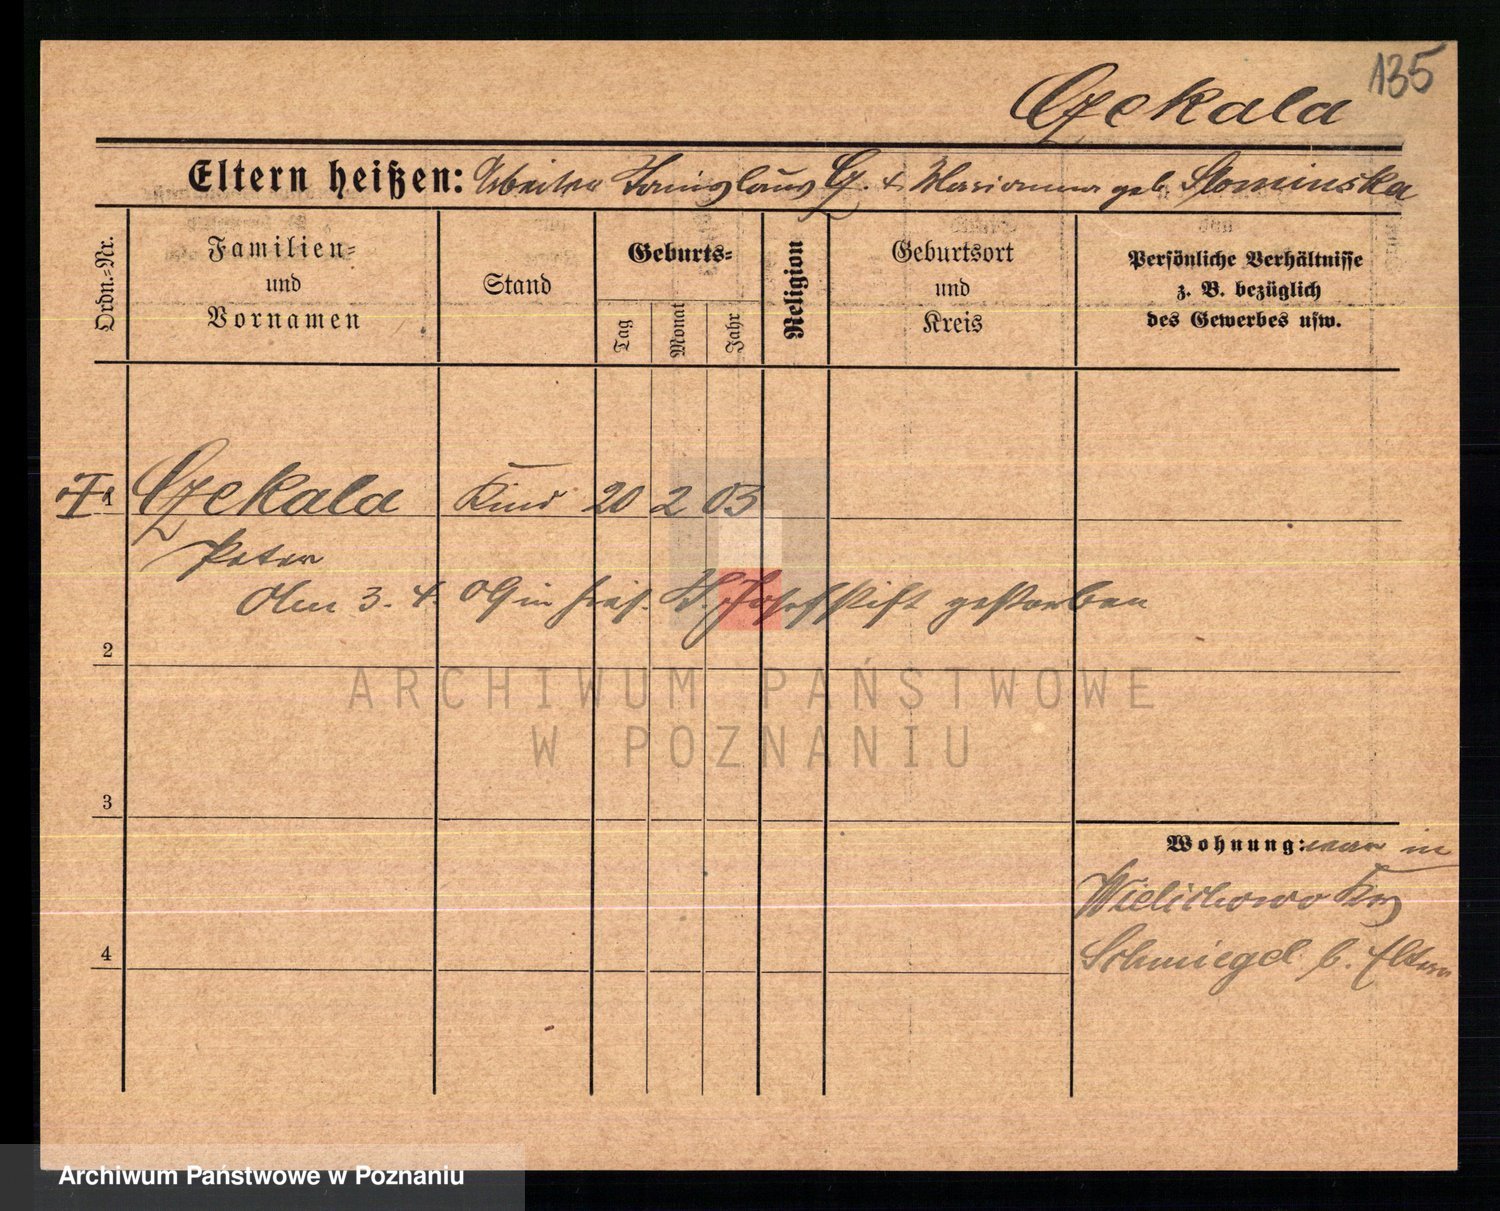 135
Czekala
Eltern heißen: Arbeiter Stanislaus Cz. + Marianna geb. Slominska
Ordn.=Nr.
Familien=
und
Vornamen
Stand
Geburts=
Tag
Monat
Jahr
Religion
Geburtsort
und
Kreis
Persönliche Verhältnisse
z. B. bezüglich
des Gewerbes usw.
1 Czekala Kind 20 2 03
Peter
Am 3. 4. 09 im hies. St. Josefstift gestorben
2
3
4
Wohnung: war in
Wielichowo Krs
Schmiegel b. Eltern
ARCHIWUM PAŃSTWOWE
W POZNANIU
Archiwum Państwowe w Poznaniu